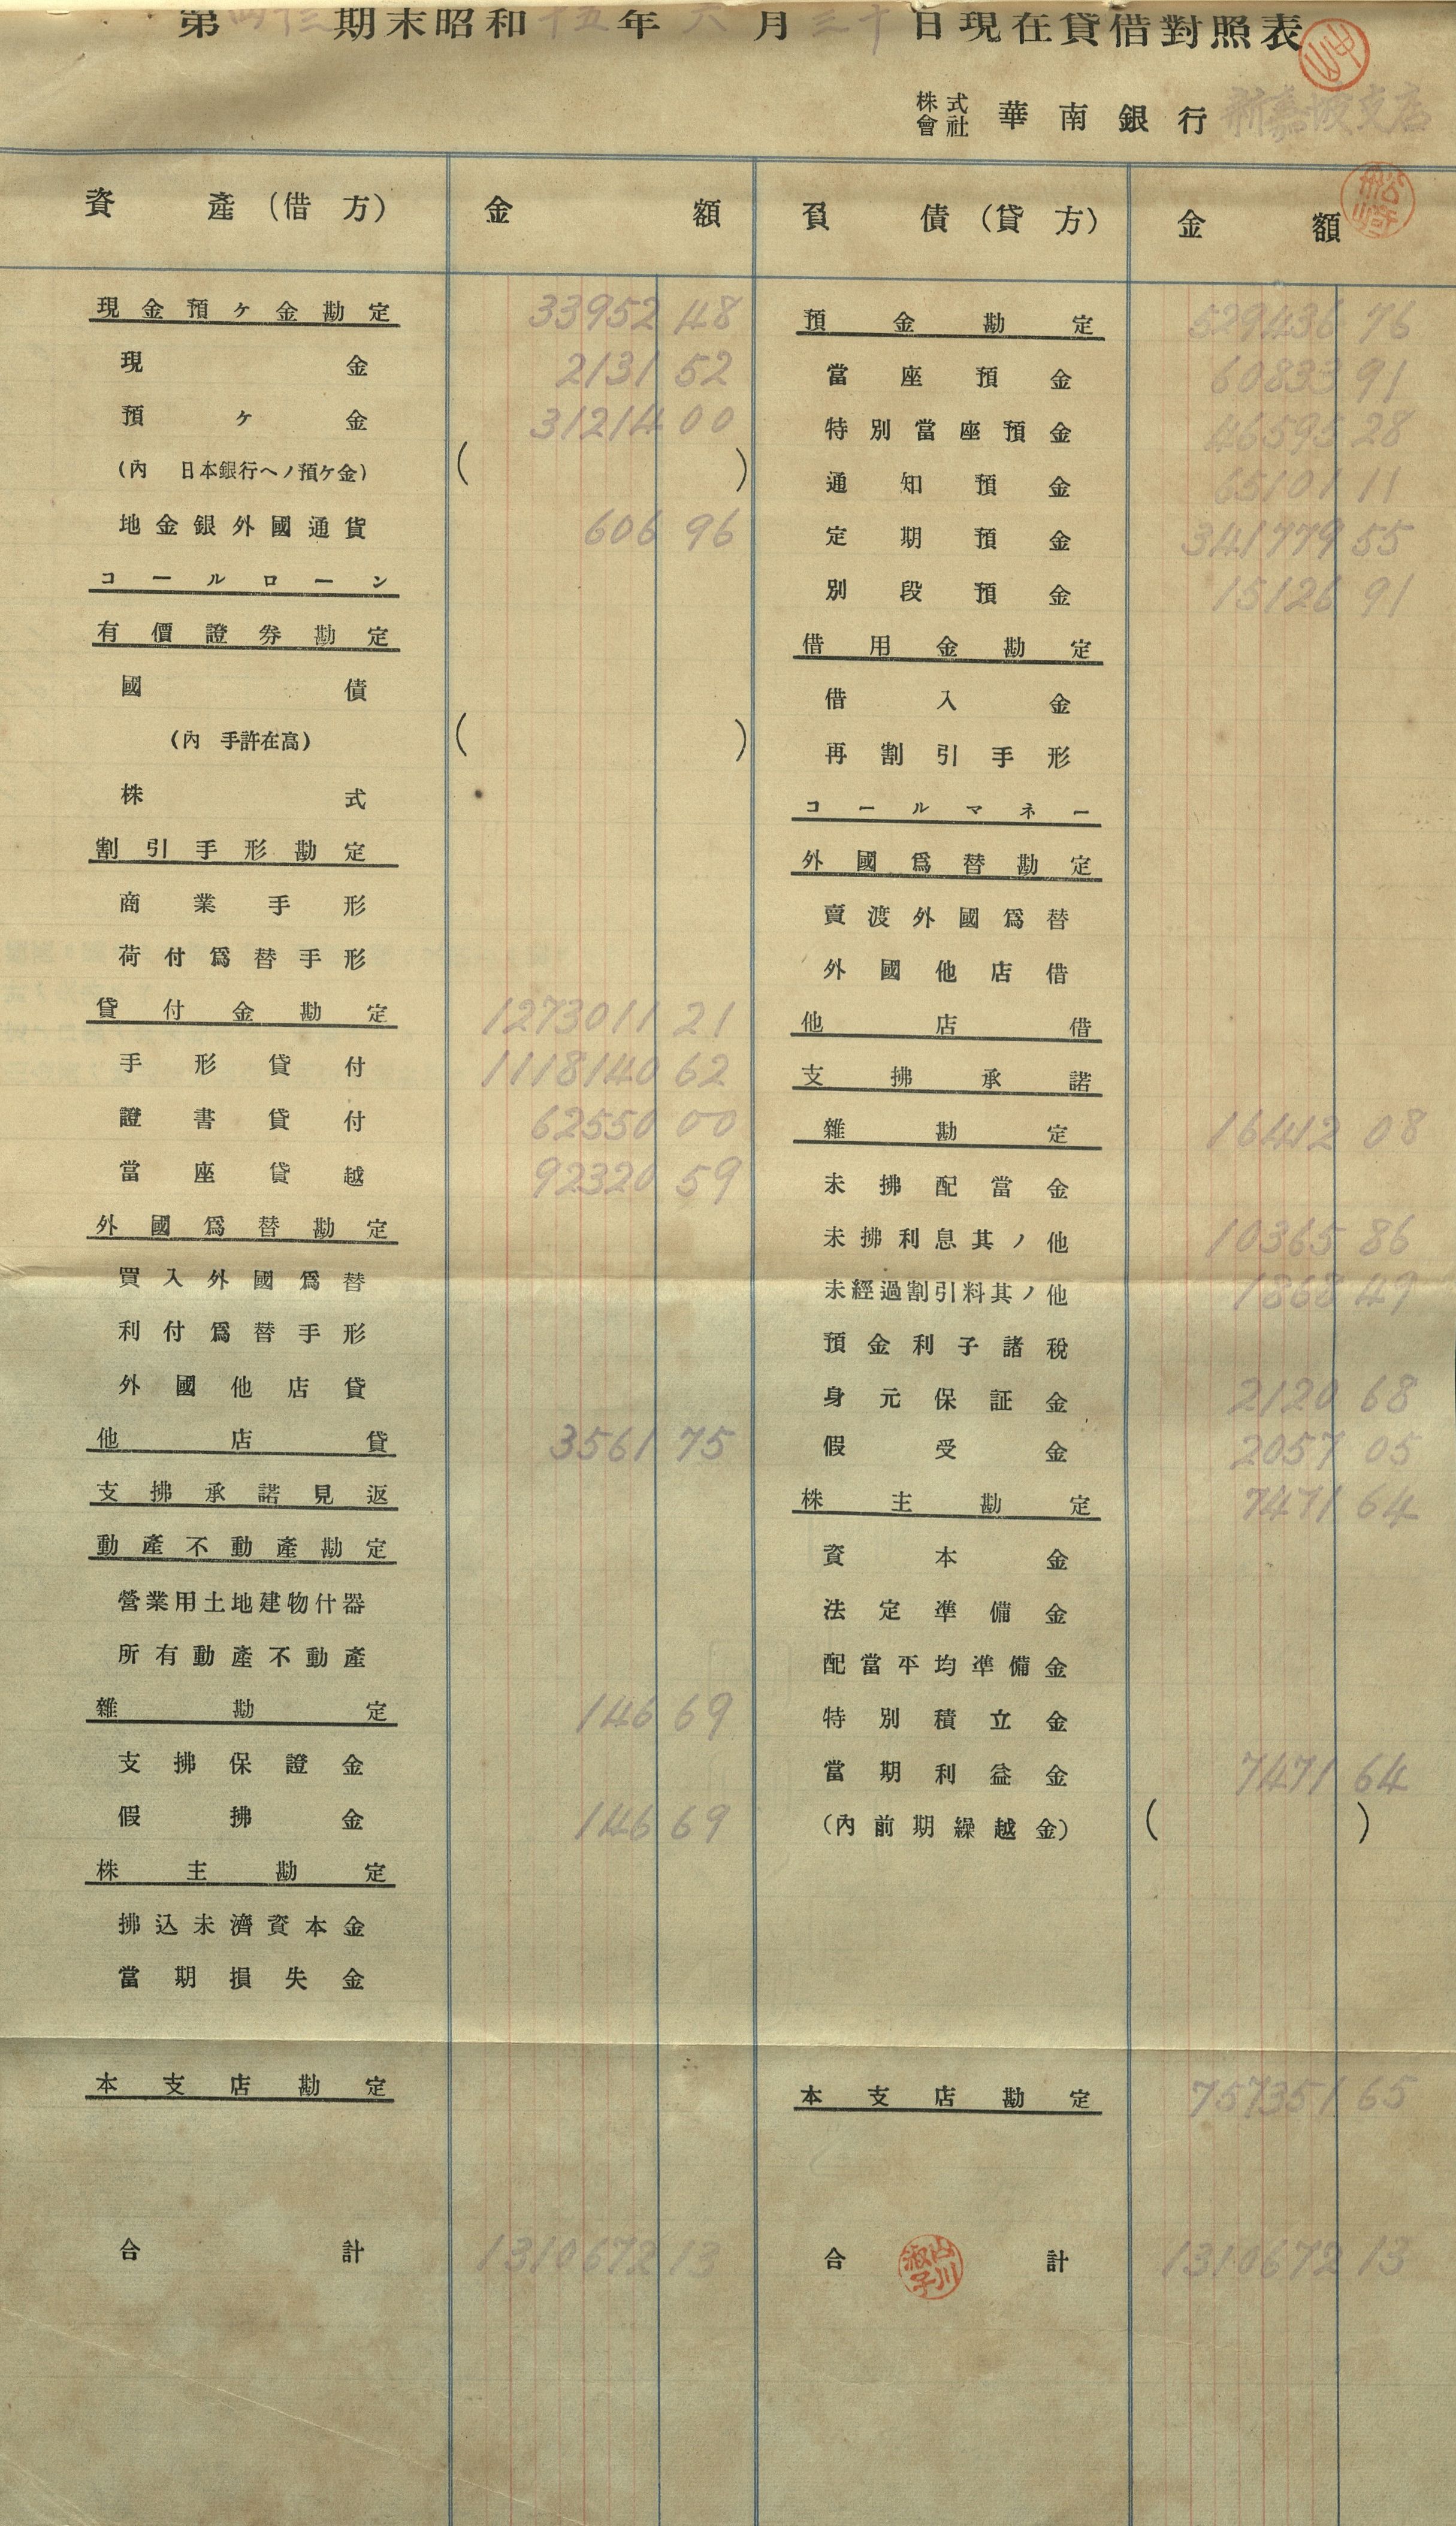 第四十三期末昭和十五年六月三十日現在貸借對照表
株式會社 華南銀行 新嘉坡支店
資產(借方) 金額 負債(貸方) 金額
現金預ヶ金勘定 33952 48
現金 2131 52
預ヶ金 31214 00
(內 日本銀行ヘノ預ヶ金) ( )
地金銀外國通貨 606 96
コールローン
有價證券勘定
國債
(內 手許在高) ( )
株式
割引手形勘定
商業手形
荷付爲替手形
貸付金勘定 1273011 21
手形貸付 1118140 62
證書貸付 62550 00
當座貸越 92320 59
外國爲替勘定
買入外國爲替
利付爲替手形
外國他店貸
他店貸 3561 75
支拂承諾見返
動產不動產勘定
營業用土地建物什器
所有動產不動產
雜勘定 146 69
支拂保證金
假拂金 146 69
株主勘定
拂込未濟資本金
當期損失金
本支店勘定
合計 1310672 13
預金勘定 529436 76
當座預金 60833 91
特別當座預金 46595 28
通知預金 65101 11
定期預金 341779 55
別段預金 15126 91
借用金勘定
借入金
再割引手形
コールマネー
外國爲替勘定
賣渡外國爲替
外國他店借
他店借
支拂承諾
雜勘定 16412 08
未拂配當金
未拂利息其ノ他 10365 86
未經過割引料其ノ他 1868 49
預金利子諸稅
身元保証金 2120 68
假受金 2057 05
株主勘定 7471 64
資本金
法定準備金
配當平均準備金
特別積立金
當期利益金 7471 64
(內前期繰越金) ( )
本支店勘定 757351 65
合計 1310672 13
山川淑子